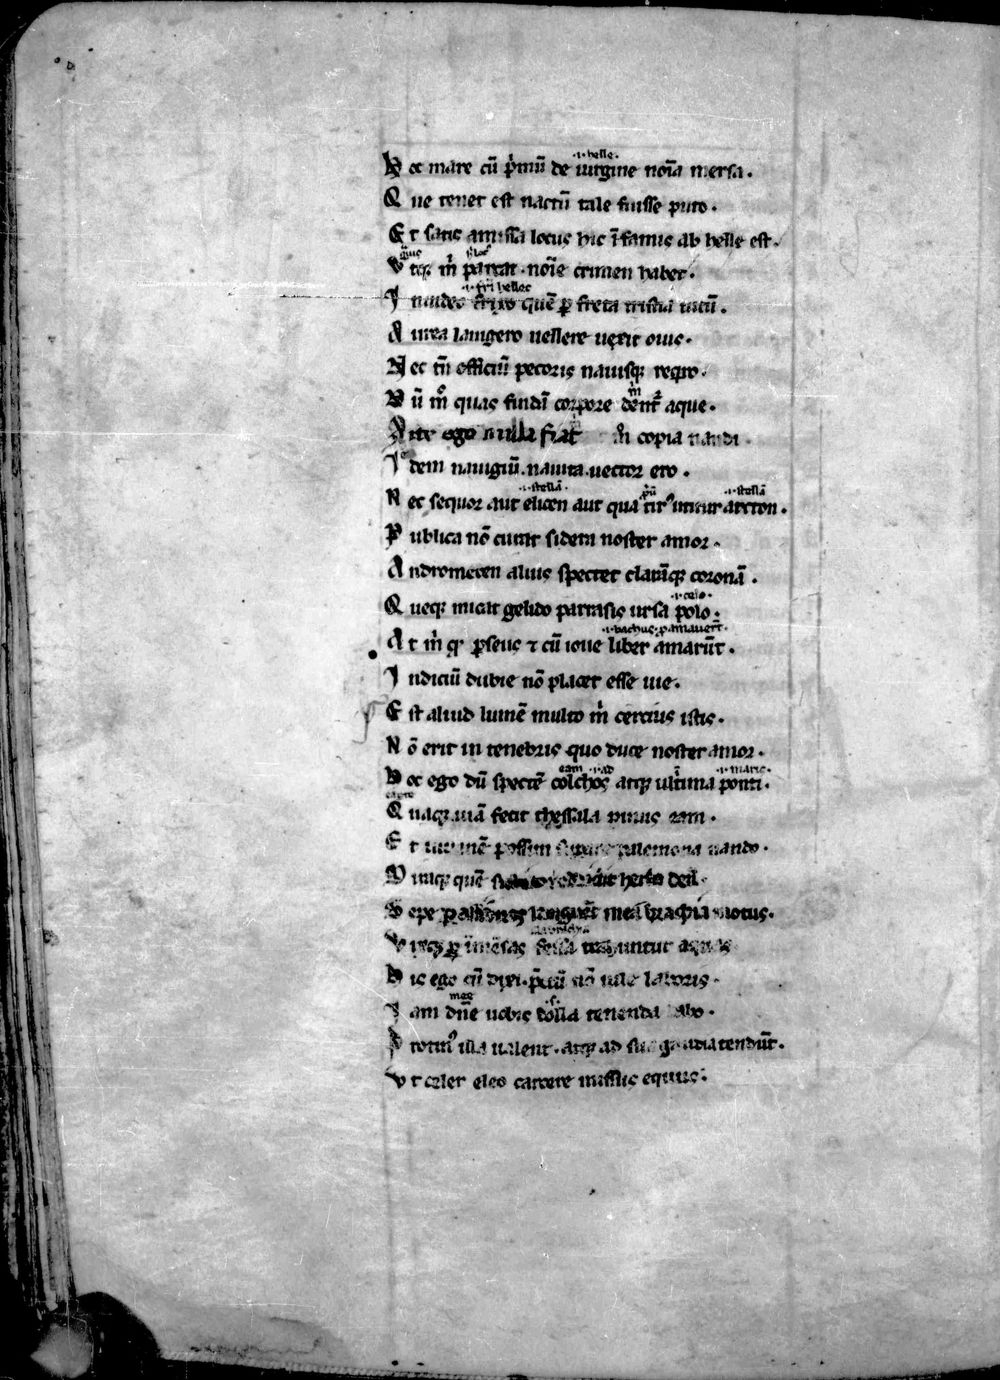 .i. helle.
Hoc mare cũ p̃mũ de uirgine noĩa mersa.
Que tenet est nactũ tale fuisse puto.
Et satis amissa locus hic ĩfamis ab helle est.
Vtq; m̃ parcat. noĩe crimen habet.
.i. fr̃i helles
Inuideo frixo quẽ ꝑ freta tristia tutũ.
Aurea lanigero uellere uexit ouis.
Nec tñ officiũ pecoris nauisq; requiro.
Dũ m̊ quas findã corpore dent̃ aque.
Arte ego nulla fiat m̃ copia nandi.
Idem nauigiũ. nauita. uector ero.
.i. stellã .i. stellã
Nec sequor aut elicen aut qua tir᷒ utitur arcton.
Publica nõ curat sidera noster amor.
Andromeden alius spectet clarãq; coronã.
.i. celo.
Queq; micat gelido parrasis ursa polo.
.i. bachus
At m̃ qꝰ ꝑseus ⁊ cũ ioue liber amarũt.
Indiciũ dubie nõ placet esse uie.
Est aliud lumẽ multo m̃ cercius istis.
Nõ erit in tenebris quo duce noster amor.
eam .i. ad .i. maris.
Hoc ego dũ spectẽ colchos atq; ultĩma ponti.
Quaq; uiã fecit thessala pinus eam.
Et iuuenẽ possim palemona nando.
Miraq; quẽ herba deũ.
Sepe mea brachia motus.
Vixq; ꝑ ĩmẽsas fessa trahuntur aquas
His ego cũ dixi. p̃ciũ nõ uile laboris.
mee
Iam dñe uobis colla tenenda dabo.
Protin᷒ illa ualent. atq; ad sua gaudia tendũt.
Vt celer eleo carcere missus equus.